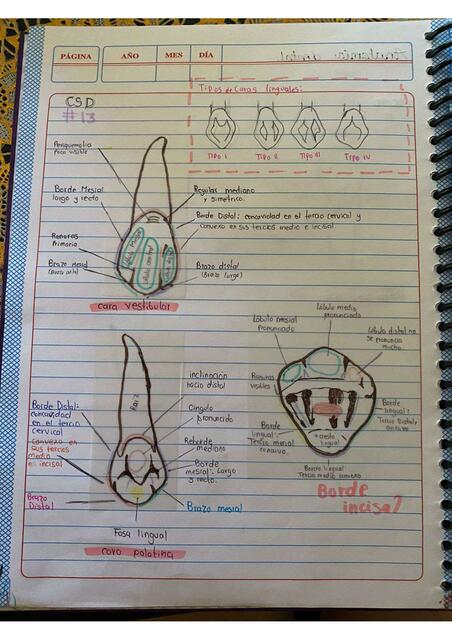 PÁGINA
AÑO
MES
DÍA
CSD
#13
Tipos de caras linguales:
TIPO I
TIPO II
TIPO III
TIPO IV
Periquematia
Poco visible
Borde Mesial
largo y recto
Primaria
Brazo mesial
Regular mediano
y simetrico.
Borde Distal: concavidad en el tercio cervical y
convexo en sus tercios medio e incisal
Brazo distal
(Brazo largo)
Lóbulo central
cara vestibular
Raiz
inclinación
hacia distal
Cingulo
pronunciado
Reborde
mediano
Borde
mesial: Largo
y recto.
Brazo mesial
Borde Distal:
concavidad
en el tercio
cervical
convexo en
sus tercios
medio
e incisal
Brazo
Distal
Fosa lingual
cara palatina
Lóbulo mesial
pronunciado
Lóbulo medio
pronunciado
Lóbulo distal no
se pronuncia
mucho.
visibles
Borde
lingual:
Tercio mesial
concavo.
Borde
lingual:
Tercio Distal:
cresta
lingual
Borde lingual
Tercio medio
Borde
incisal